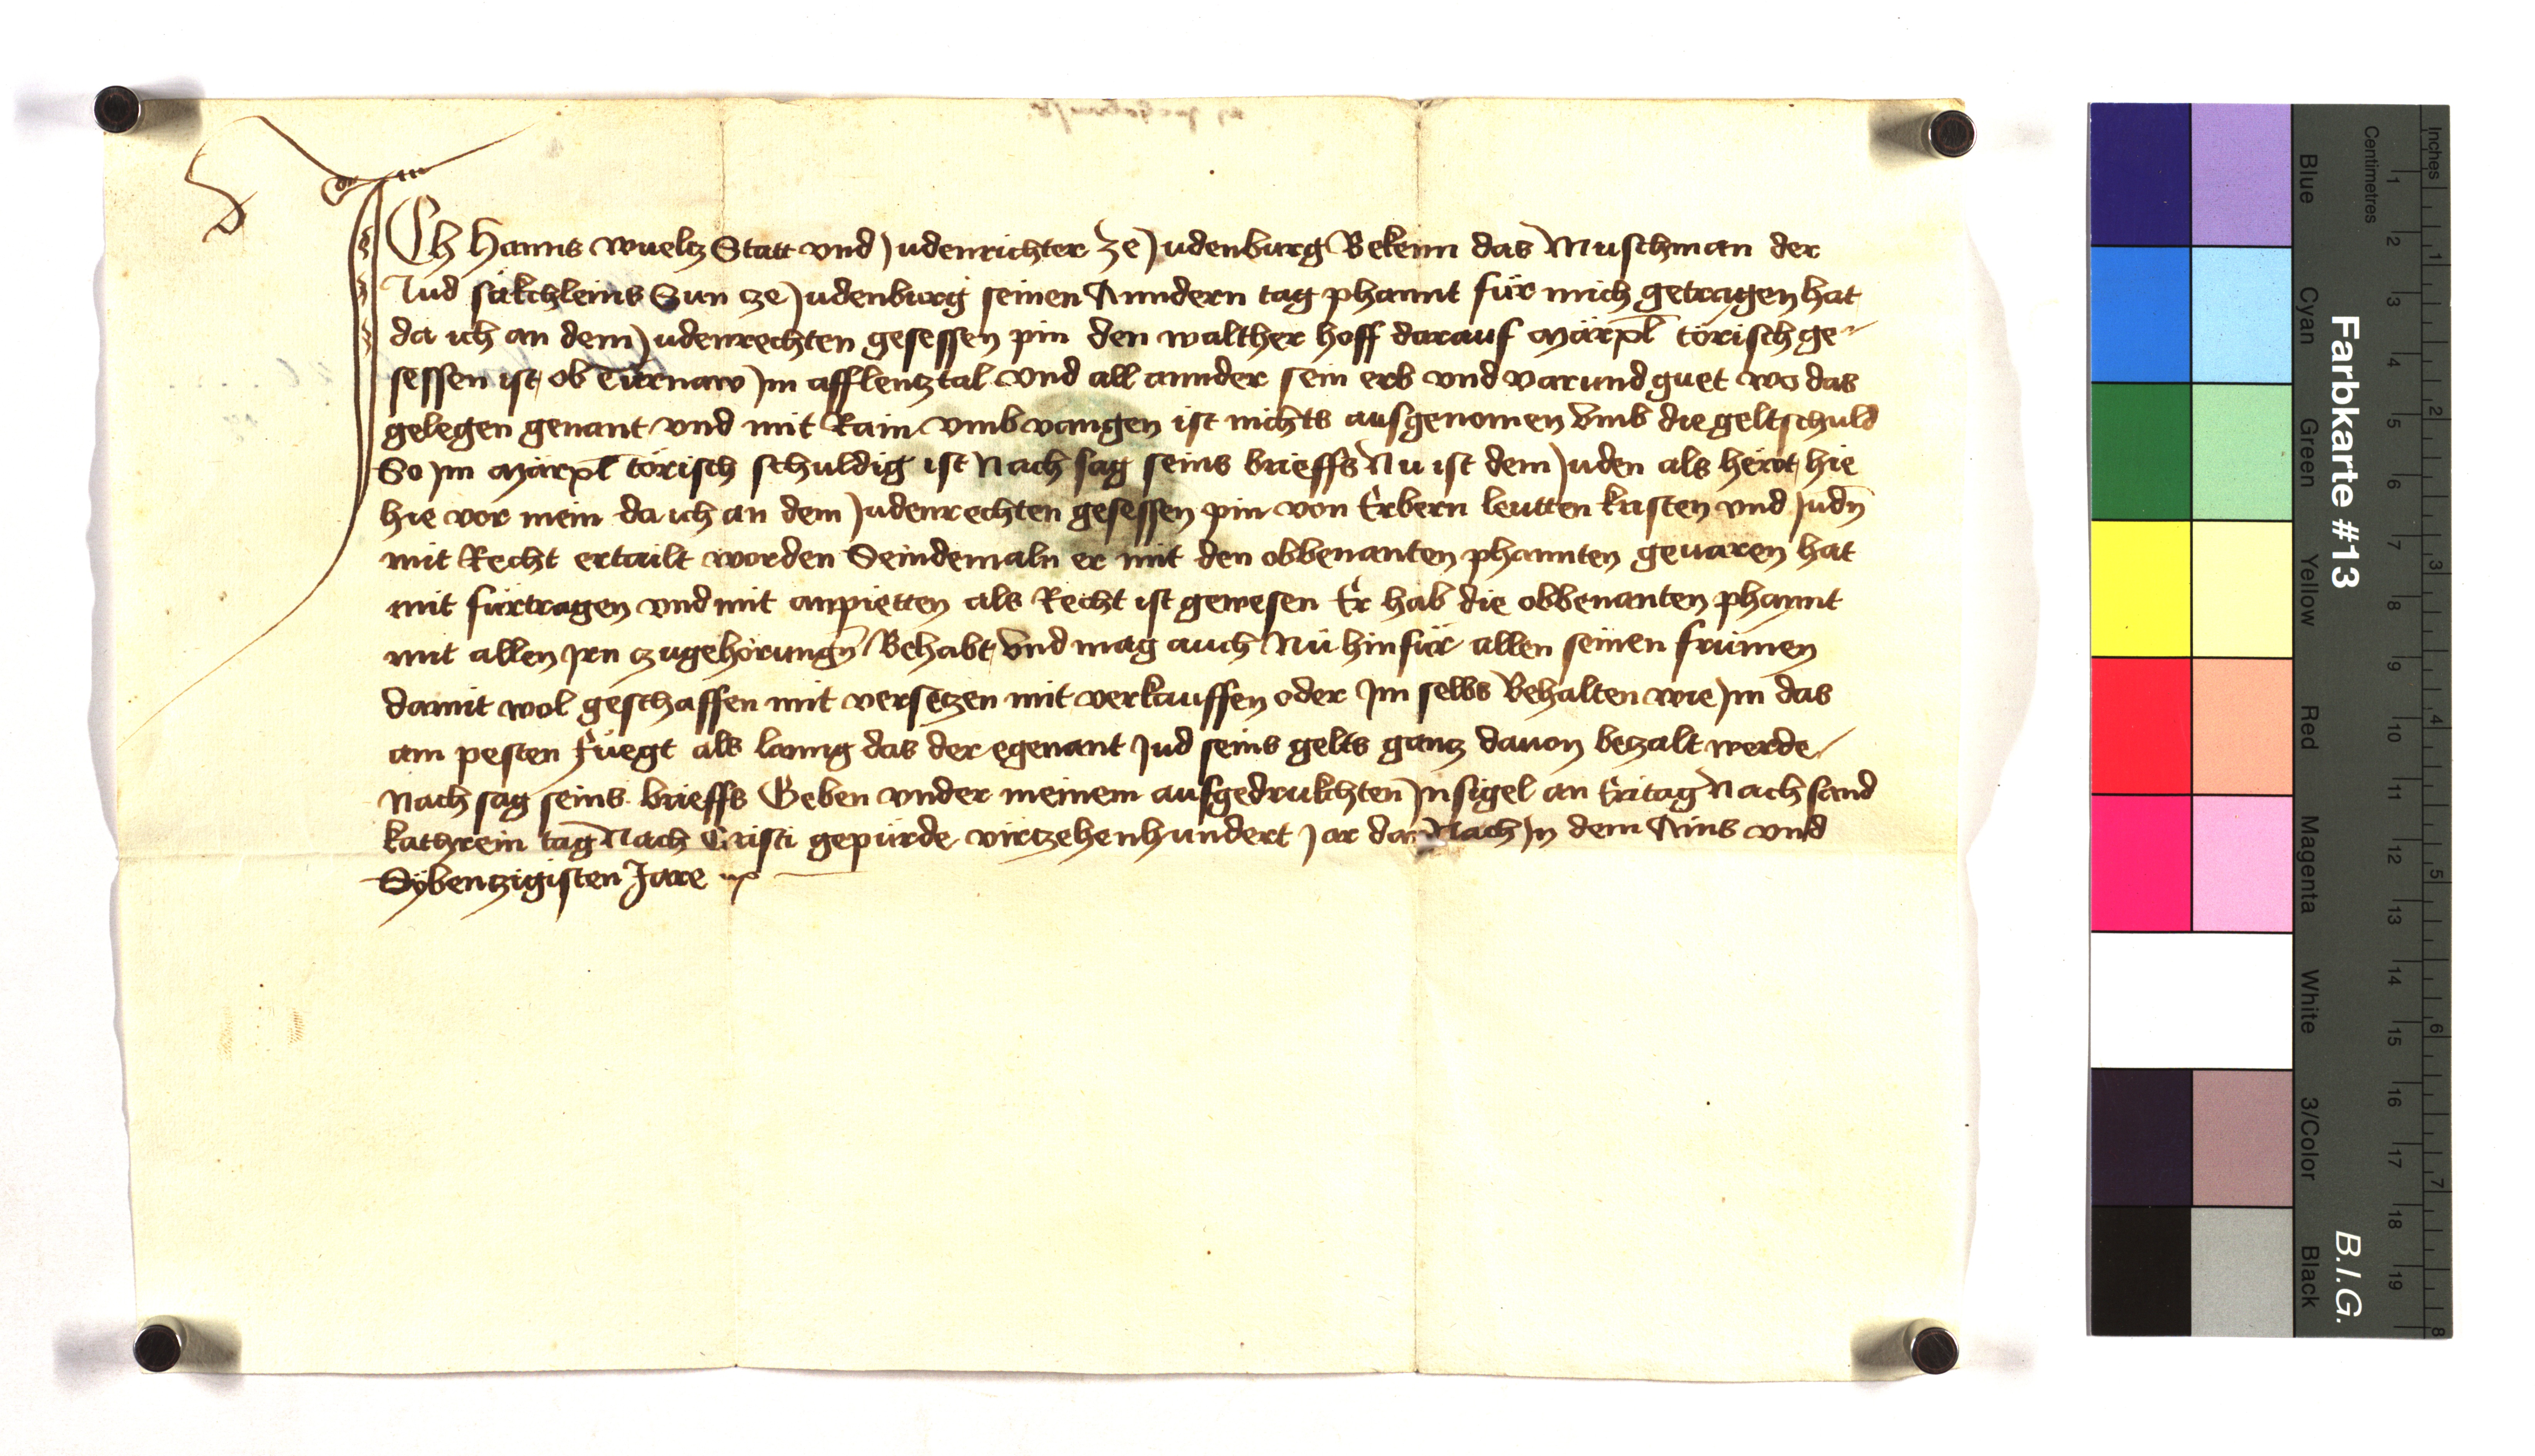 ICh Hanns wueltz Statt vnd Judenrichter Ze Judenburg Bekenn das Muschman der
Jud säkchleins Sun cze Judenburg seinen Anndern tag phannt für mich getragen hat
da ich an dem Judenrechten gesessen pin den walther hoff darauf Märxl törisch ge-
sessen ist ob Türnaw Jm afflentztal vnd all annder sein erb vnd varund guet wo das
gelegen genant vnd mit Rain vmbvangen ist nichts ausgenomen Vmb die geltschuld
So Jm Märxl törisch schuldig ist Nach sag seins brieffs Nu ist dem Juden als hewt hie
hie vor mein da ich an dem Judenrechten gesessen pin von Erbern leutten kristen vnd Judn̄
mit Recht ertailt worden Seindemaln er mit den obbenanten phannten geuaren hat
mit fürtragen vnd mit anpietten als Recht ist gewesen Er hab die obbenanten phannt
mit allen Jrn czugehörungn̄ Behabt Vnd mag auch Nü hinfür allen seinen frümen
damit wol geschaffen mit versetzen mit verkauffen oder Jm selbs Behalten wie Jm das
am pesten füegt als lanng das der egenant Jud seins gelts gantz dauon betzalt werde
Nach sag seins brieffs Geben vnder meinem aufgedrukchten Jnsigel an Eritag Nach sand
kathrein tag Nach Cristi gepürde virtzehenhundert Jar darNach Jn dem Ains vnd
Sybentzigisten Jare
Farbkarte #13
B.I.G.
Inches 1 2 3 4 5 6 7 8
Centimetres 1 2 3 4 5 6 7 8 9 10 11 12 13 14 15 16 17 18 19
Blue Cyan Green Yellow Red Magenta White 3/Color Black